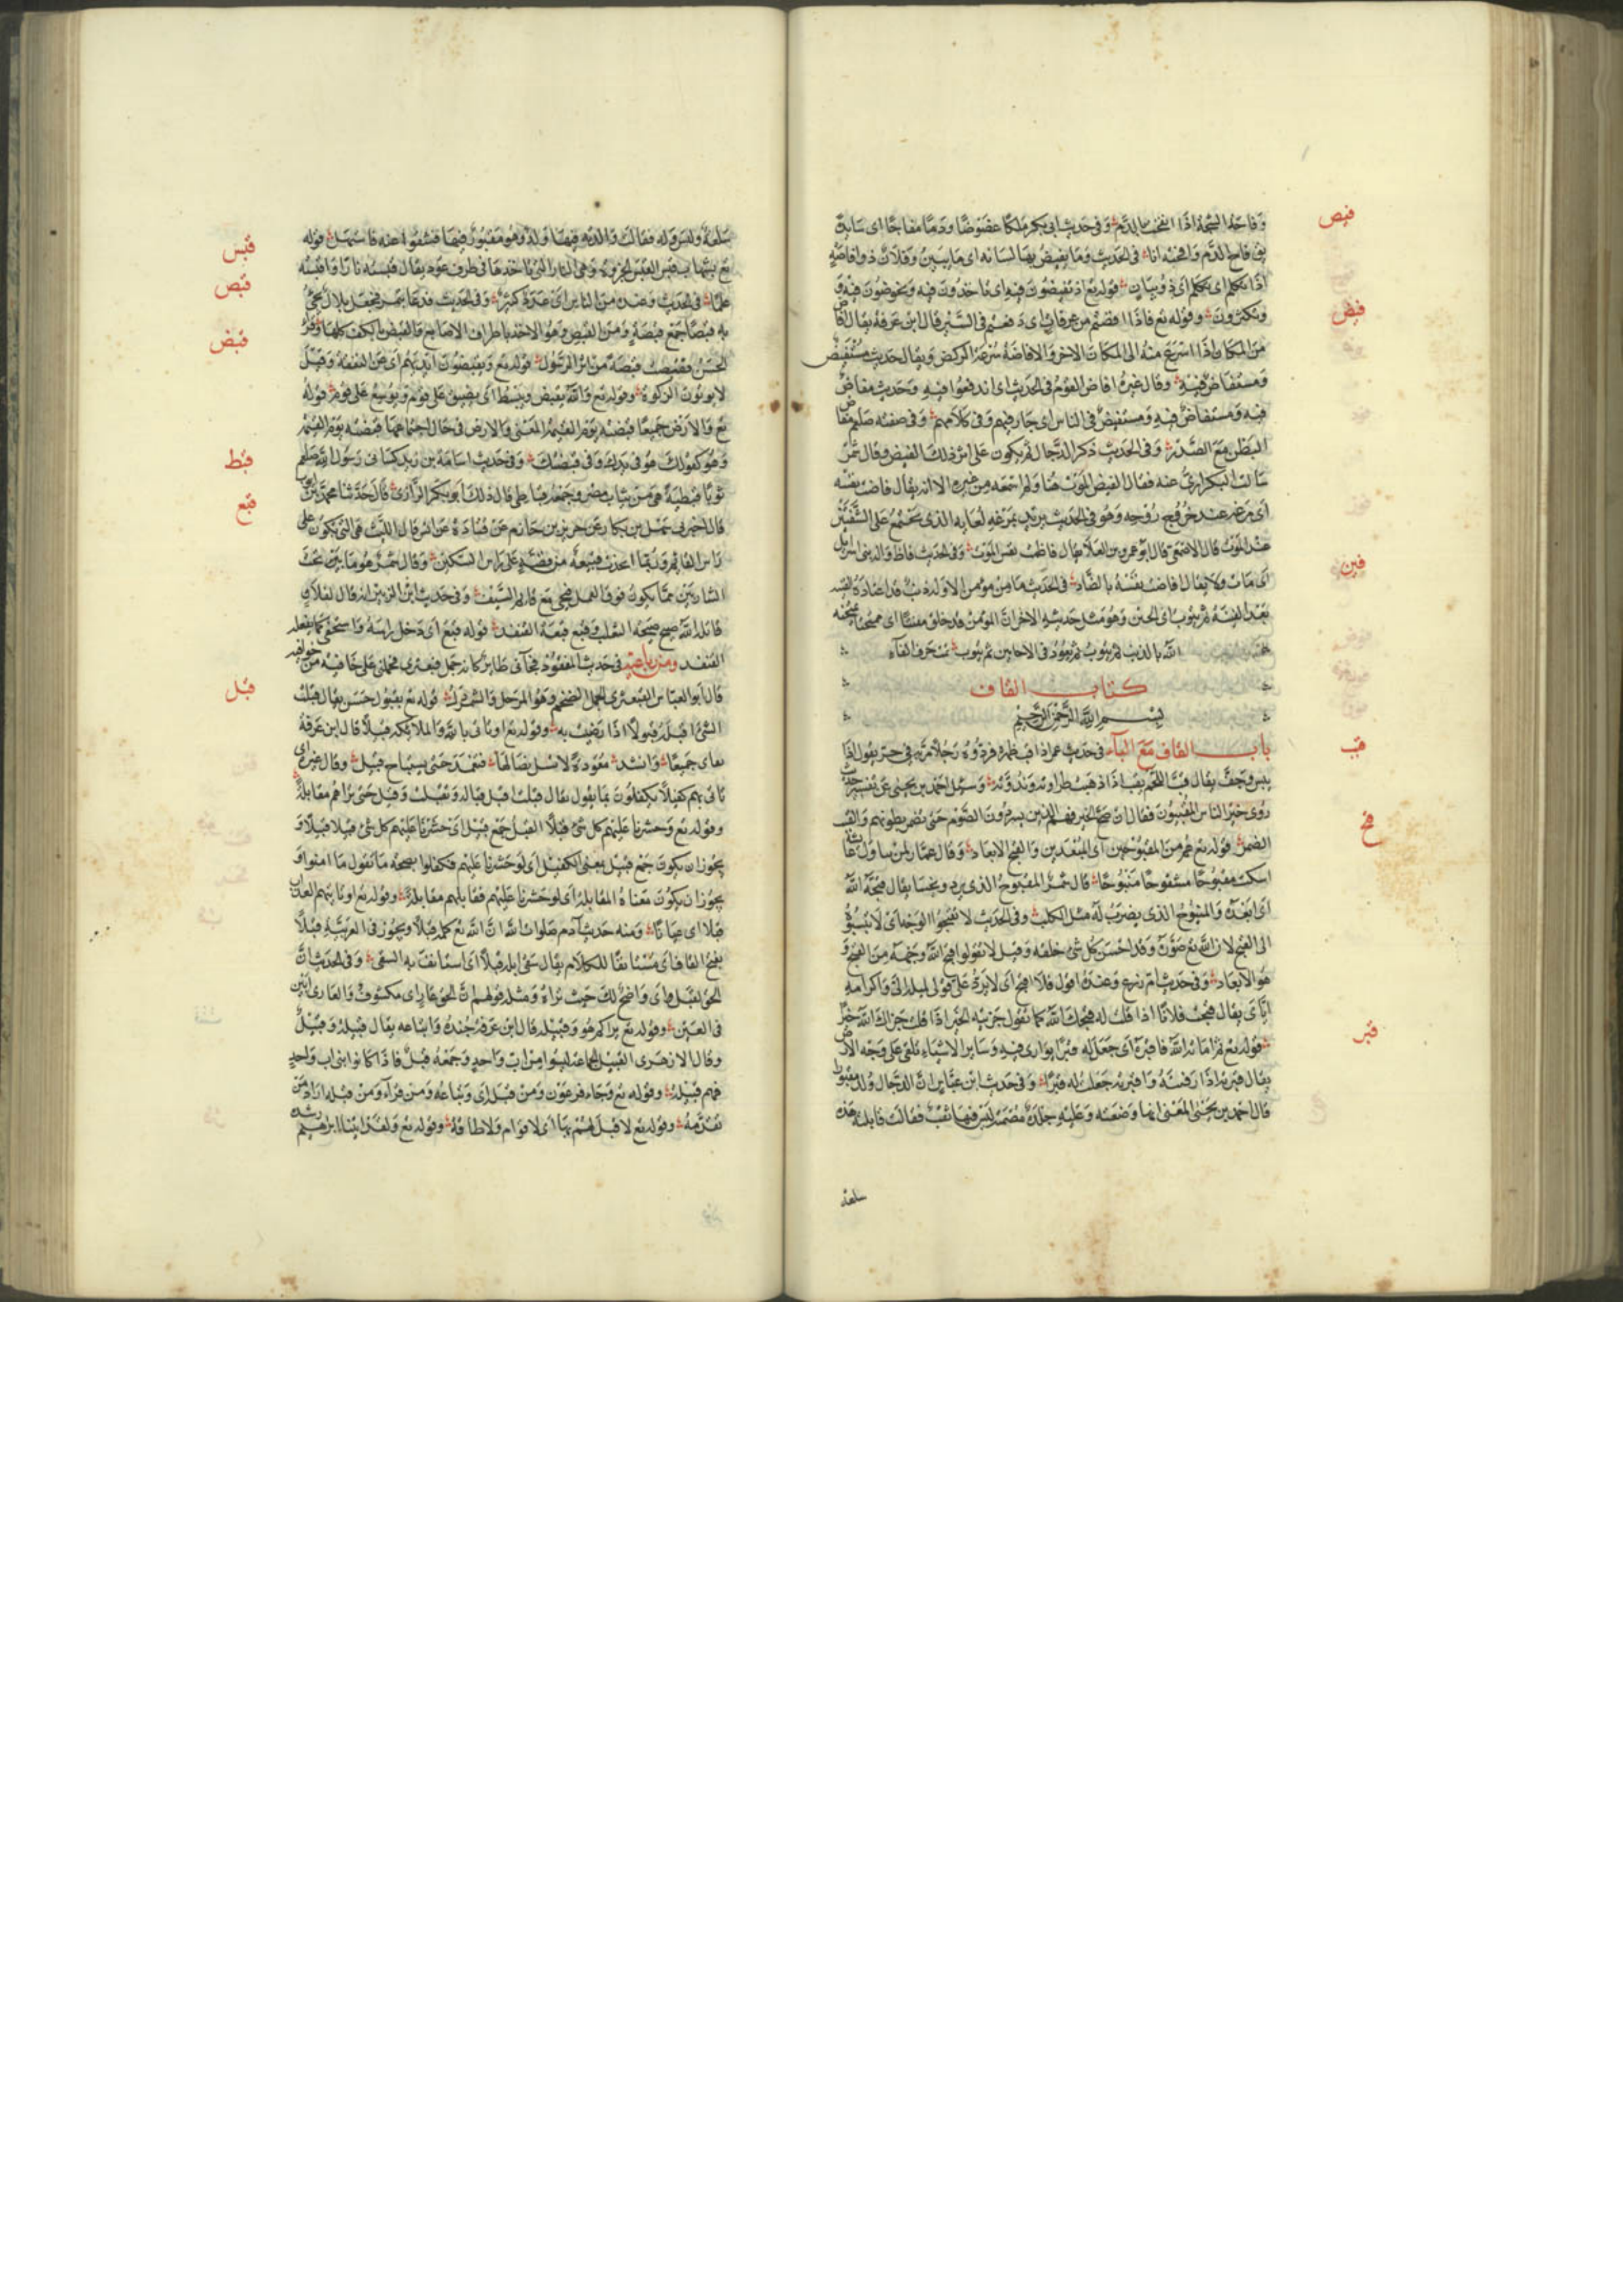 فيص
وفاحت الشجة اذا انفحت بالدم وفى حديث ابى بكر ملكا عضوضا ودما مفاحا اى سايلا
يق فاح الدم وافحته انا فى الحديث وما يفيص بها لسانه اى ما يبين وفلان ذو افاصة
اذا تكلم اى تكلم اى ذو بيان قوله تع اذ تفيضون فيه اى تاخذون فيه وتخوضون فيه و
فيض
وتكثرون وقوله تع فاذا افضتم من عرفات اى دفعتم فى السير قال ابن عرفة يقال افاض
من المكان اذا اسرع منه الى المكان الاخر والافاضة سرعة الركض ويقال حديث مستفيض
ومستفاض فيه وقال غيره افاض القوم فى الحديث اى اندفعوا فيه وحديث مفاض
فيه ومستفاض فيه ومستفيض فى الناس اى جار فيهم وفى كلامهم وفى صفته صلعم مفاض
البطن مع الصدر وفى الحديث ذكر الدجال ثم يكون على اثر ذلك الفيض وقال شمر
سالت البكراوى عنه فقال الفيض الموت هنا ولم اسمعه من غيره الا انه يقال فاضت نفسه
اى عند خروج روحه وهو فى الحديث لعابه الذى يجتمع على الشفتين
عند الموت قال الاصمعى قال ابو عمرو بن العلا يقال فاظ الميت وفى الحديث فاظ واله بنى اسرايل
فين
اى مات ولا يقال فاضت نفسه بالضاد فى الحديث ما من مومن الا وله ذنب قد اعتاده الفينة
بعد الفينة اى الحين بعد الحين وهو مثل حديثه الاخر ان المومن خلق مفتنا اى ممتحنا يمتحنه
الله بالذنب ثم يتوب ثم يعود فى الاحايين ثم يتوب تم حرف الفاء
كتاب القاف
بسم الله الرحمن الرحيم
قب
باب القاف مع الباء فى حديث عمر اذا قب ظهره فردوه رجلا ضربه فى حد يقول اذا
يبس وجف يقال قب اللحم يقب اذا ذهبت طراوته وندوته وسئل احمد بن يحيى عن تفسير حديث
روى خير الناس القبيون فقال ان صح الخبر فهم الذين يسردون الصوم حتى تضمر بطونهم والقبب
قبح
الضمر قوله تع هم من المقبوحين اى المبعدين والقبح الابعاد وقال عمار لمن تناول عايشة
اسكت مقبوحا مشقوحا منبوحا قال شمر المقبوح الذى يرد ويخسا يقال قبحه الله
اى ابعده والمنبوح الذى يضرب له مثل الكلب وفى الحديث لا تقبحوا الوجه اى لا تنسبوه
الى القبح لان الله تع صوره وقد احسن كل شئ خلقه وقيل لا تقولوا قبح الله وجهه من القبح و
هو الابعاد وفى حديث ام زرع وعنده اقول فلا اقبح اى لا يرد على قولى لميله الى واكرامه
اياى يقال قبحت فلانا اذا قلت له قبحك الله كما تقول جزيته الخير اذا قلت جزاك الله خيرا
قبر
قوله تع ثم اماته الله فاقبره اى جعل له قبرا يوارى فيه وساير الاشياء تلقى على وجه الارض
يقال قبرته اذا دفنته واقبرته جعلت له قبرا وفى حديث ابن عباس ان الدجال ولد مقبورا
قال احمد بن يحيى المعنى انها وضعته وعليه جلدة مصمتة ليس فيها ثقب فقالت قابلته هذه
سلعة
قبس
سلعة وليس ولد فقالت والدته فيها ولد وهو مقبور فيها فشقوا عنه فاستهل قوله
تع بشهاب قبس القبس الجذوة وهى النار التى تاخذها فى طرف عود يقال قبسته نارا واقبسته
قبص
علما فى الحديث وعنده من الناس اى عدد كثير وفى الحديث فدعا بتمر فجعل بلال يجئ
به قبصا جمع قبصة ومن القبص وهو الاخذ باطراف الاصابع والقبض بالكف كلها وقرأ
قبض
الحسن فقبصت قبصة من اثر الرسول قوله تع ويقبضون ايديهم اى عن النفقة وقيل
لا يوتون الزكوة وقوله تع والله يقبض ويبسط اى يضيق على قوم ويوسع على قوم قوله
تع والارض جميعا قبضته يوم القيمة المعنى والارض فى حال اجتماعها قبضته يوم القيمة
قبط
وهو كقولك هو فى يدك وفى قبضتك وفى حديث اسامة بن زيد كسانى رسول الله صلعم
ثوبا قبطية هى من ثياب مصر وجمعه قباطى قال ذلك ابو بكر الرازى قال حدثنا محمد بن ايوب
قبع
قال اخبرنى سهل بن بكار عن جرير بن حازم عن قتادة عن انس قال الليث هى التى تكون على
راس القايم وربما اتخذت قبيعة من فضة على راس السكين وقال شمر هو ما تحت
الشاربين مما يكون فوق الغمد فيجى مع قايم السيف وفى حديث ابن الزبير انه قال لفلان
قاتله الله ضبح ضبحة الثعلب وقبع قبعة القنفذ قوله قبع اى دخل راسه واستخفى كما يفعل
القنفذ ومن رباعيه فى حديث المفقود فجاءنى طاير كانه جمل قبعثرى فحملنى على خافية من خوافيه
قبل
قال ابو العباس القبعثرى الجمل الضخم وهو المرجل والشمردل قوله تع بقبول حسن يقال قبلت
الشئ اقبله قبولا اذا رضيت به وقوله تع او تاتى بالله والملائكة قبيلا قال ابن عرفة
اى جميعا وانشد معودة لا تسل نصالها فتغمد حتى يستباح قبيل وقال غيره اى
تاتى بهم كفيلا يكفلون بما تقول يقال قبلت اقبل قبالة وتقبلت وقيل حتى نراهم مقابلة
وقوله تع وحشرنا عليهم كل شئ قبلا القبل جمع قبيل اى حشرنا عليهم كل شئ قبيلا قبيلا و
يجوز ان يكون جمع قبيل بمعنى الكفيل اى لو حشرنا عليهم فتكفلوا بصحة ما تقول ما امنوا و
يجوز ان يكون معناه المقابلة اى لو حشرنا عليهم فقابلهم مقابلة وقوله تع او ياتيهم العذاب
قبلا اى عيانا ومنه حديث آدم صلوات الله ان الله تع كلمه قبلا ويجوز فى العربية قبلا
بفتح القاف اى مستانفا للكلام يقال سقى ابله قبلا اى استانف به السقى وفى الحديث ان
الحق لقبل اى واضح لك حيث تراه ومثله قولهم ان الحق عار اى مكشوف والعارى ابين
فى العين وقوله تع يراكم هو وقبيله قال ابن عرفة جنده واتباعه يقال قبيلة وقبيل
وقال الازهرى القبيل الجماعة ليسوا من اب واحد وجمعه قبل فاذا كانوا بنى اب واحد
فهم قبيلة وقوله تع وجاء فرعون ومن قبله اى وتباعه ومن قرأ ومن قبله اراد من
تقدمه وقوله تع لا قبل لهم بها اى لا قوام ولا طاقة وقوله تع ولقد آتينا ابراهيم رشده